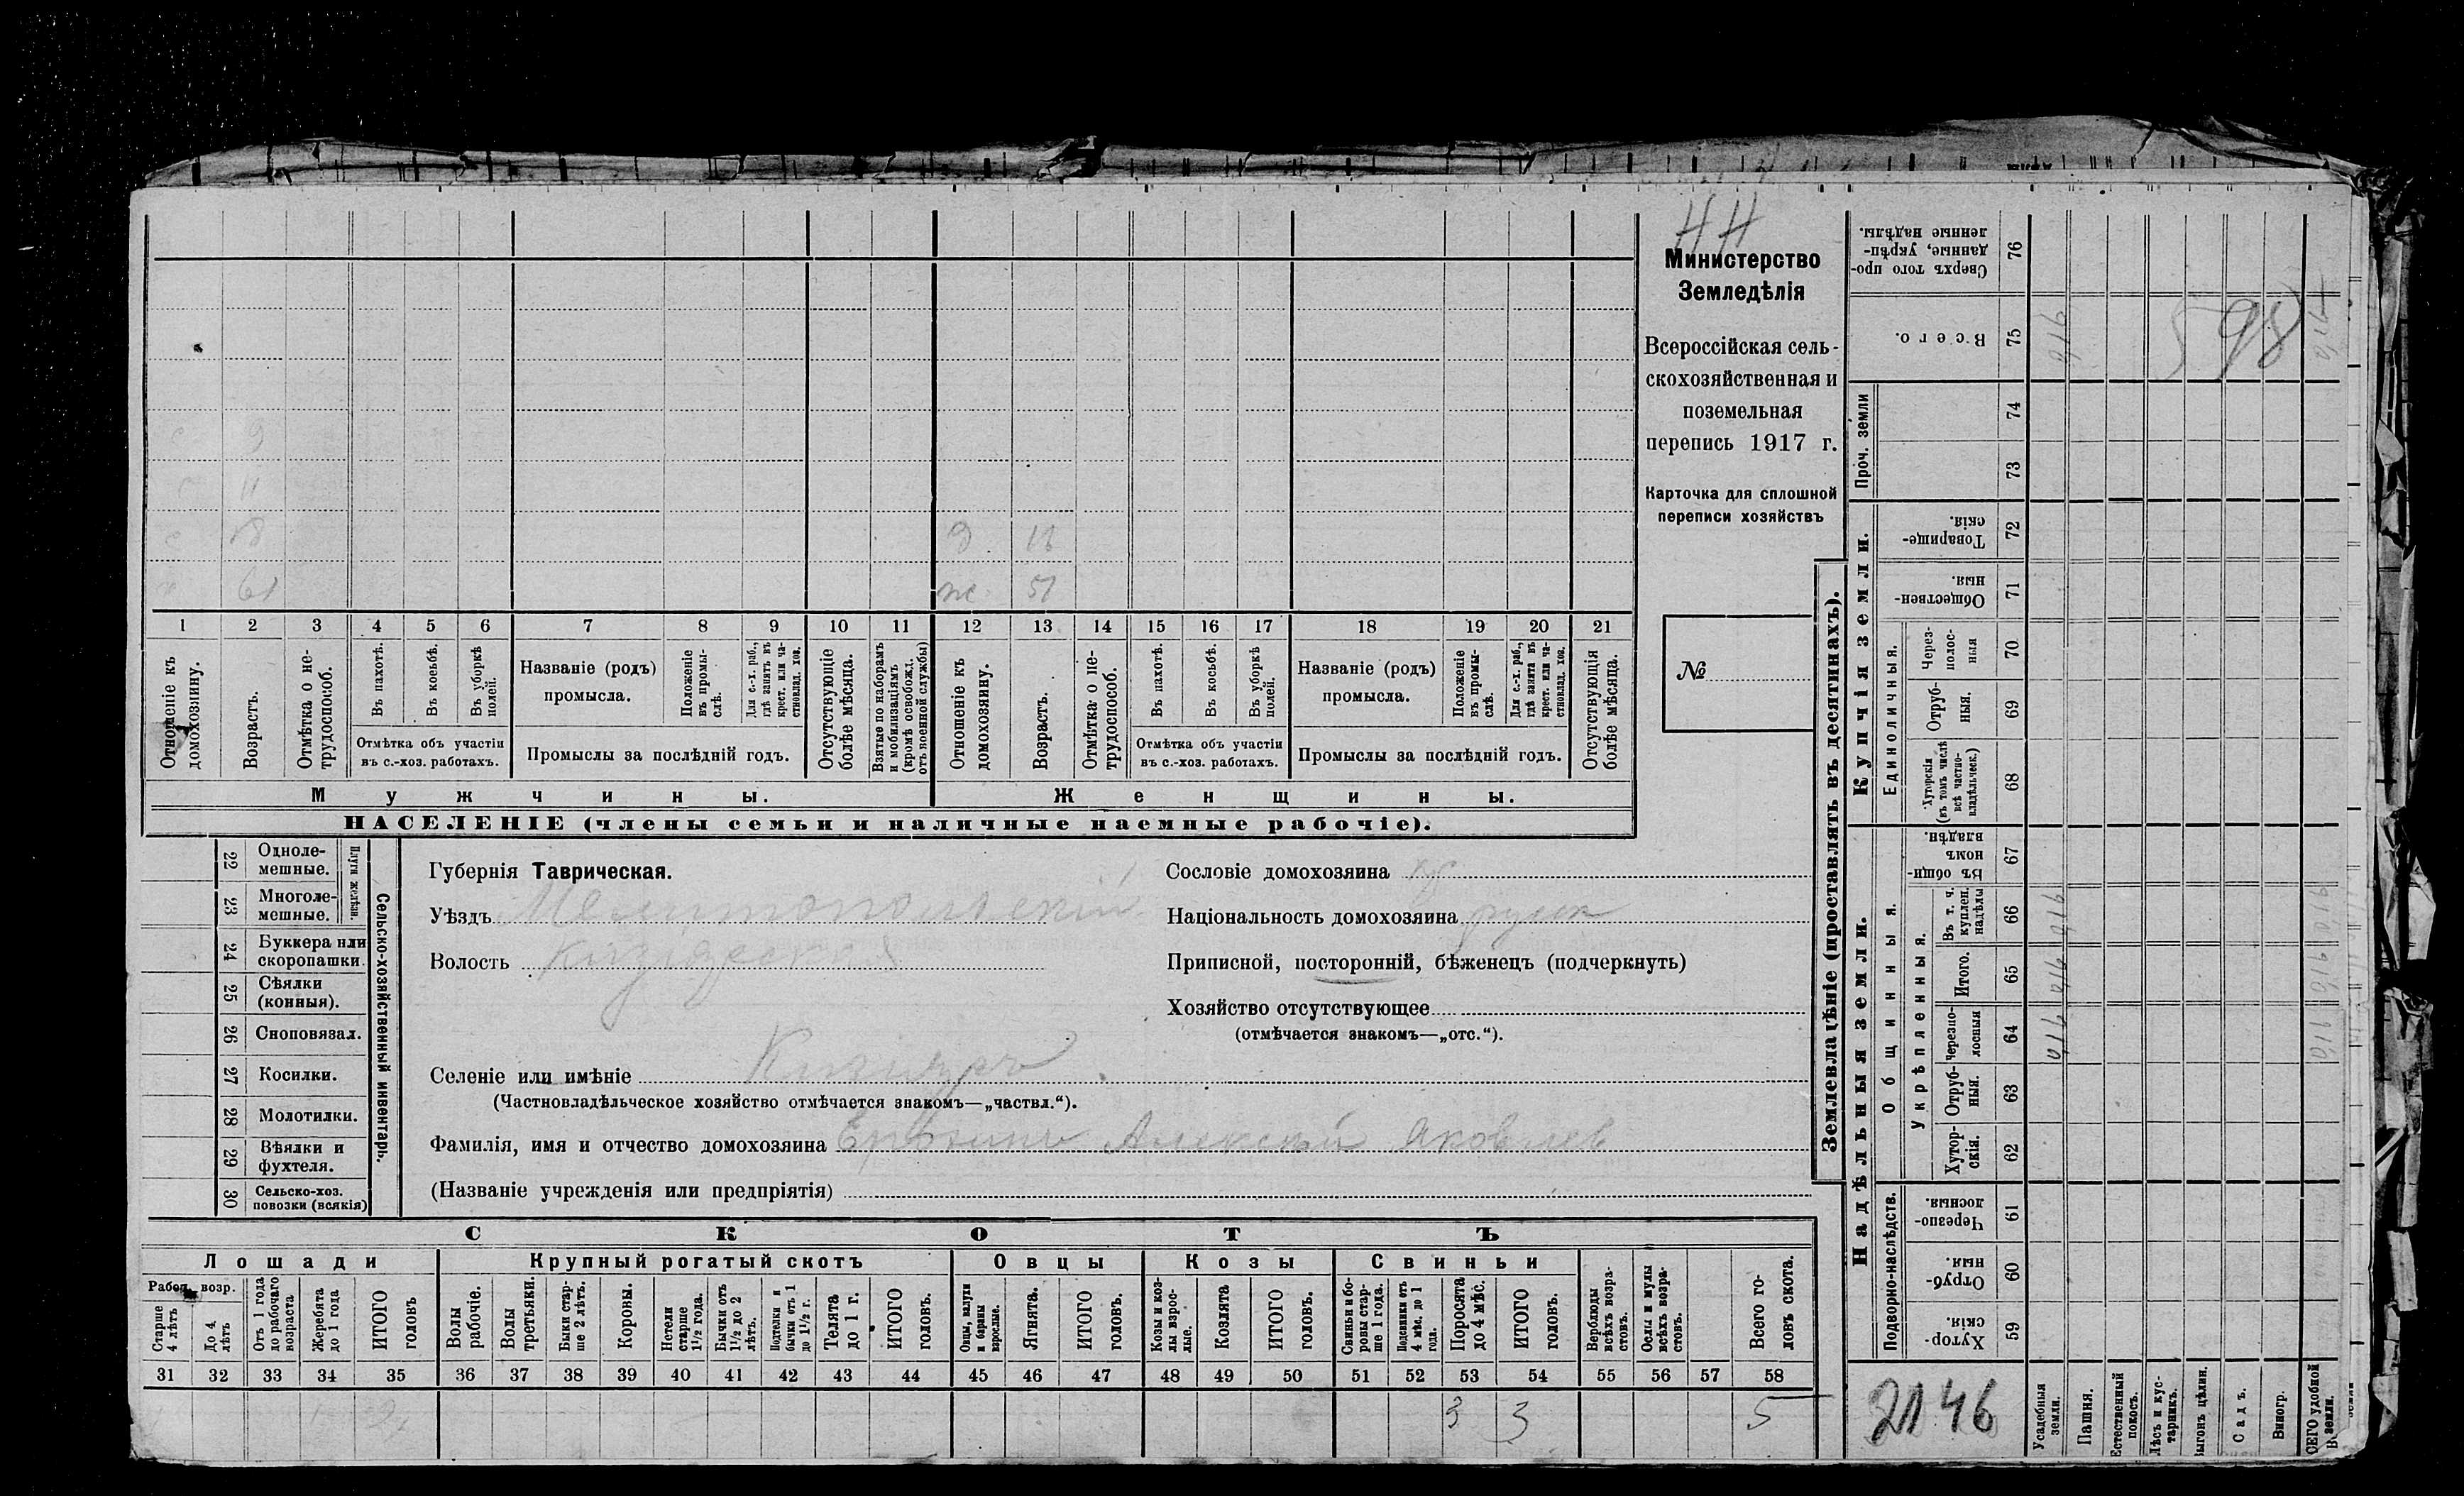 НН
Министерство
Земледѣлія
Всероссійская сель-
скохозяйственная и
поземельная
перепись 1917 г.
Карточка для сплошной
переписи хозяйствъ
№
с 9
с 11
с 18
х 61
д 16
ж 51
1 2 3 4 5 6 7 8 9 10 11 12 13 14 15 16 17 18 19 20 21
Отношеніе къ домохозяину.
Возрастъ.
Отмѣтка о не-
трудоспособ.
Въ пахотѣ.
Въ косьбѣ.
Въ уборкѣ
полей.
Отмѣтка объ участіи
въ с.-хоз. работахъ.
Названіе (родъ)
промысла.
Положеніе
въ промы-
слѣ.
Для с.-х. раб.,
гдѣ занятъ въ
крест. или ча-
стновлад. хоз.
Промыслы за послѣдній годъ.
Отсутствующіе
болѣе мѣсяца.
Взятые по наборамъ
и мобилизаціямъ
(кромѣ освобожд.
отъ военной службы)
Отношеніе къ
домохозяину.
Возрастъ.
Отмѣтка о не-
трудоспособ.
Въ пахотѣ.
Въ косьбѣ.
Въ уборкѣ
полей.
Отмѣтка объ участіи
въ с.-хоз. работахъ.
Названіе (родъ)
промысла.
Положеніе
въ промы-
слѣ.
Для с.-х. раб.,
гдѣ занята въ
крест. или ча-
стновлад. хоз.
Промыслы за послѣдній годъ.
Отсутствующія
болѣе мѣсяца.
Мужчины.
Женщины.
НАСЕЛЕНІЕ (члены семьи и наличные наемные рабочіе).
22 Одноле-
мешные.
23 Многоле-
мешные.
Плуги желѣзн.
24 Буккера или
скоропашки.
25 Сѣялки
(конныя).
26 Сноповязал.
27 Косилки.
28 Молотилки.
29 Вѣялки и
фухтеля.
30 Сельско-хоз.
повозки (всякія)
Сельско-хозяйственный инвентарь.
Губернія Таврическая.
Уѣздъ Мелитопольскій
Волость
Селеніе или имѣніе
(Частновладѣльческое хозяйство отмѣчается знакомъ—„частвл.“).
Фамилія, имя и отчество домохозяина Алексѣй Яковлев
(Названіе учрежденія или предпріятія)
Сословіе домохозяина кр
Національность домохозяина русск
Приписной, посторонній, бѣженецъ (подчеркнуть)
Хозяйство отсутствующее
(отмѣчается знакомъ—„отс.“).
СКОТЪ
Лошади
Крупный рогатый скотъ
Овцы
Козы
Свиньи
Рабоч. возр.
Старше
4 лѣтъ
До 4
лѣтъ
Отъ 1 года
до рабочаго
возраста
Жеребята
до 1 года
ИТОГО
головъ
Волы
рабочіе.
Волы
третьяки.
Быки стар-
ше 2 лѣтъ.
Коровы.
Нетели
старше
1½ года.
Бычки отъ
1½ до 2
лѣтъ.
Подтелки и
бычки отъ 1
до 1½ г.
Телята
до 1 г.
ИТОГО
головъ.
Овцы, валухи
и бараны
взрослые.
Ягнята.
ИТОГО
головъ.
Козы и коз-
лы взрос-
лые.
Козлята
ИТОГО
головъ.
Свиньи и бо-
ровы стар-
ше 1 года.
Подсвинки отъ
4 мѣс. до 1
года.
Поросята
до 4 мѣс.
ИТОГО
головъ.
Верблюды
всѣхъ возра-
стовъ.
Ослы и мулы
всѣхъ возра-
стовъ.
Всего го-
ловъ скота.
31 32 33 34 35 36 37 38 39 40 41 42 43 44 45 46 47 48 49 50 51 52 53 54 55 56 57 58
3 3 5
Землевладѣніе (проставлять въ десятинахъ).
Сверхъ того про-
данные, укрѣп-
ленные надѣлы.
76
Всего.
75
Проч. земли
74
73
Купчія земли.
Товарище-
скія.
72
Обществен-
ныя.
71
Единоличныя.
Через-
полос-
ныя
70
Отруб-
ныя.
69
Хуторскія
(въ томъ числѣ
всѣ частно-
владѣльческ.)
68
Надѣльныя земли.
Общинныя.
Въ общи-
номъ
владѣн.
67
Укрѣпленныя.
Въ т. ч.
куплен.
надѣлы
66
Итого.
65
Черезпо-
лосныя
64
Отруб-
ныя.
63
Хутор-
скія.
62
Подворно-наслѣдств.
Черезпо-
лосныя
61
Отруб-
ныя
60
Хутор-
скія
59
598
2146
Усадебныя
земли.
Пашня.
Естественный
покосъ.
Лѣсъ и кус-
тарникъ.
Выгонъ цѣлин.
Садъ.
Виногр.
ВСЕГО удобной
земли.